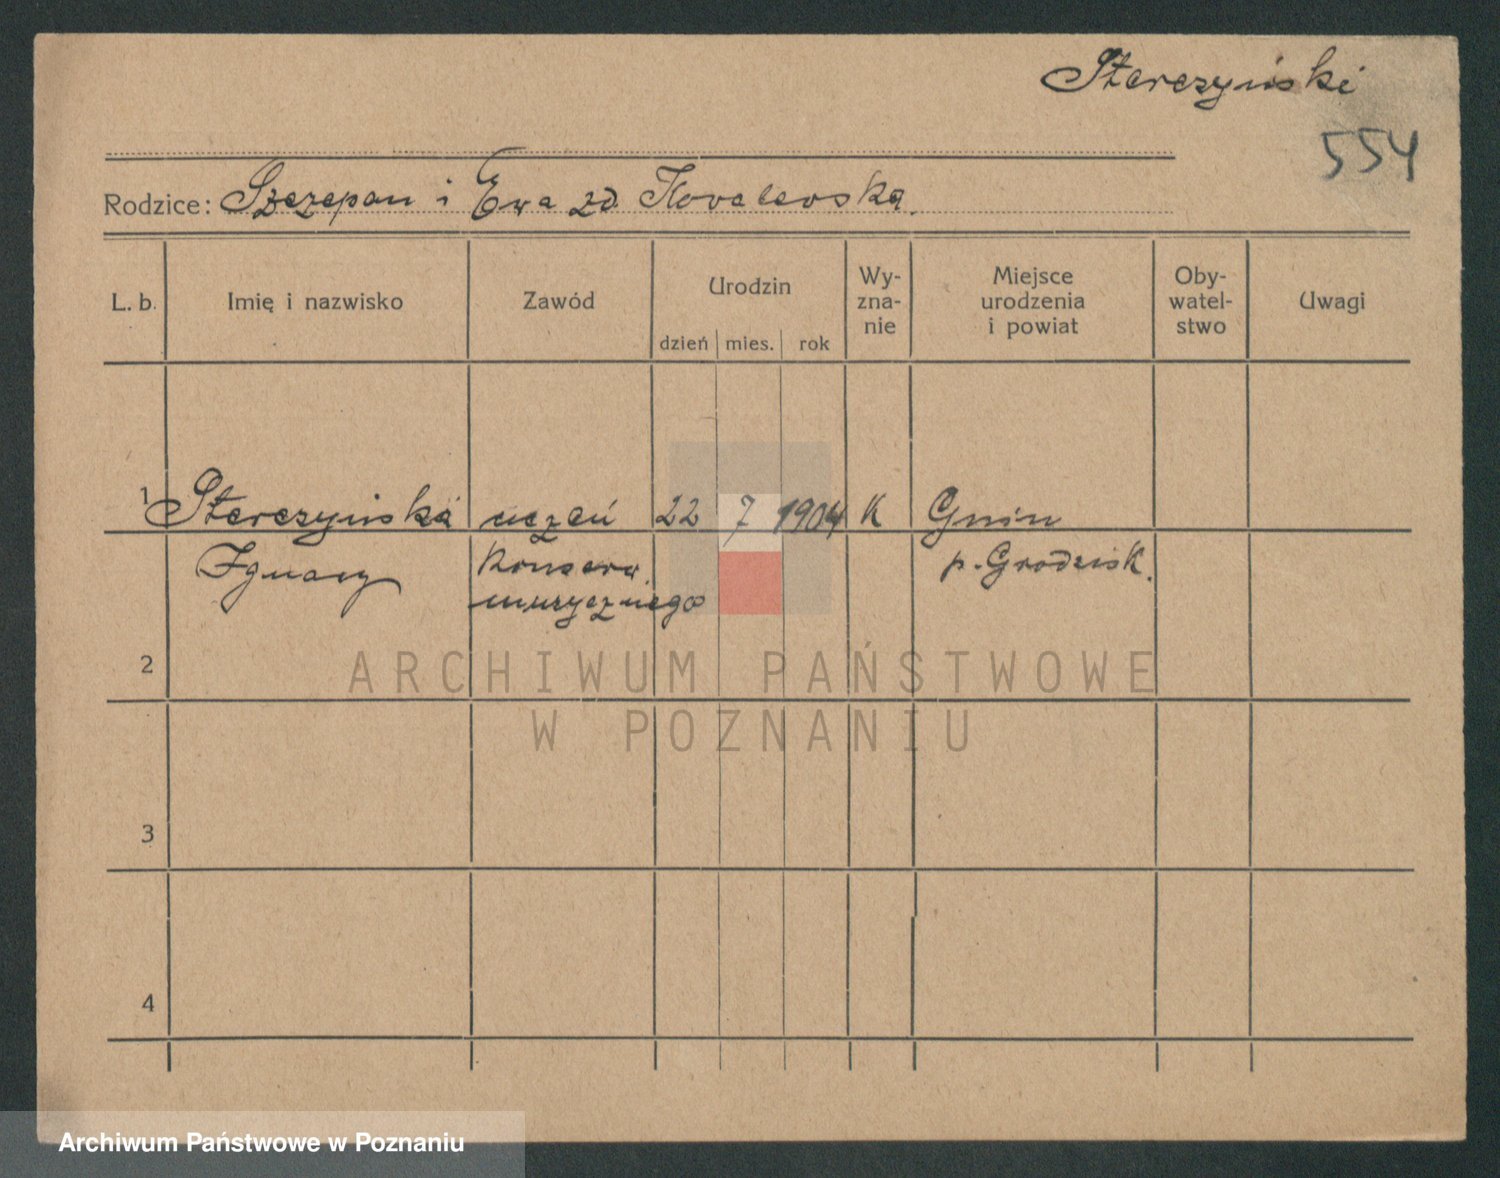 Sterczyński
554
Rodzice: Szczepan i Ewa zd. Kowalewska.
L. b. Imię i nazwisko Zawód Urodzin dzień mies. rok Wy-zna-nie Miejsce urodzenia i powiat Oby-watel-stwo Uwagi
1 Sterczyński uczeń 22 7 1904 K Gnin
Ignacy Konserw. p. Grodzisk.
muzycznego
2
ARCHIWUM PAŃSTWOWE
W POZNANIU
3
4
Archiwum Państwowe w Poznaniu